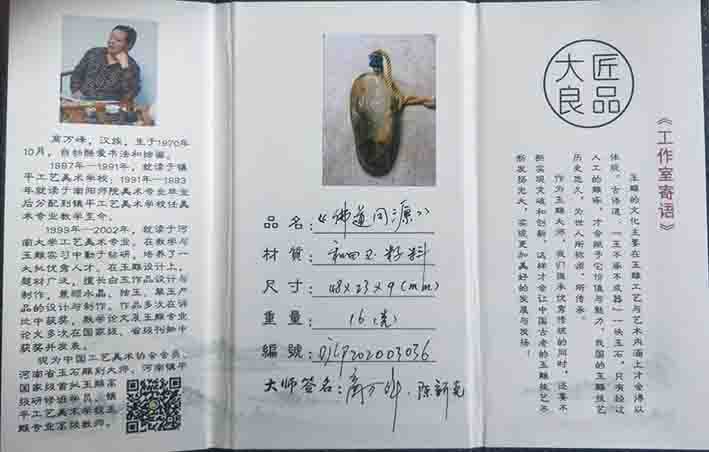 高万峰，汉族，生于1970年
10月，自幼酷爱书法和绘画。
1987—1991年，就读于镇
平工艺美术学校；1991—1993
年就读于南阳师院美术专业毕业
后分配到镇平工艺美术学校任美
术专业教学至今。
1999—2002年，就读于河
南大学工艺美术专业。在教学与
玉雕实习中勤于钻研，培养了一
大批优秀人才。在玉雕设计上，
题材广泛，擅长白玉作品设计与
制作，兼顾水晶、独玉、翠玉产
品的设计与制作。作品多次在评
比中获奖，教学论文及玉雕专业
论文多次在国家级、省级刊物中
获奖并发表。
现为中国工艺美术协会会员、
河南省玉石雕刻大师，河南镇平
国家级首批玉雕高
级研修班学员，镇
平工艺美术学校玉
雕专业高级教师。
品名：《佛道同源》
材質：和田玉籽料
尺寸：48x23x9(mm)
重量：16(克)
編號：DJCP202003036
大师签名：高万峰、陈新亮
匠品
大良
《工作室寄语》
玉雕的文化主要在玉雕工艺与艺术内涵上才会得以
体现。古语道，“玉不琢不成器”一块玉石，只有经过
人工的雕琢，才会赋予它价值与魅力，我国的玉雕技艺
历史悠久，为世人所称颂、所传承。
作为玉雕大师，我们在承优秀传统的同时，还要不
断实现突破和创新，这样才会让中国古老的玉雕技艺不
断发扬光大，实现更加美好的发展与发扬！